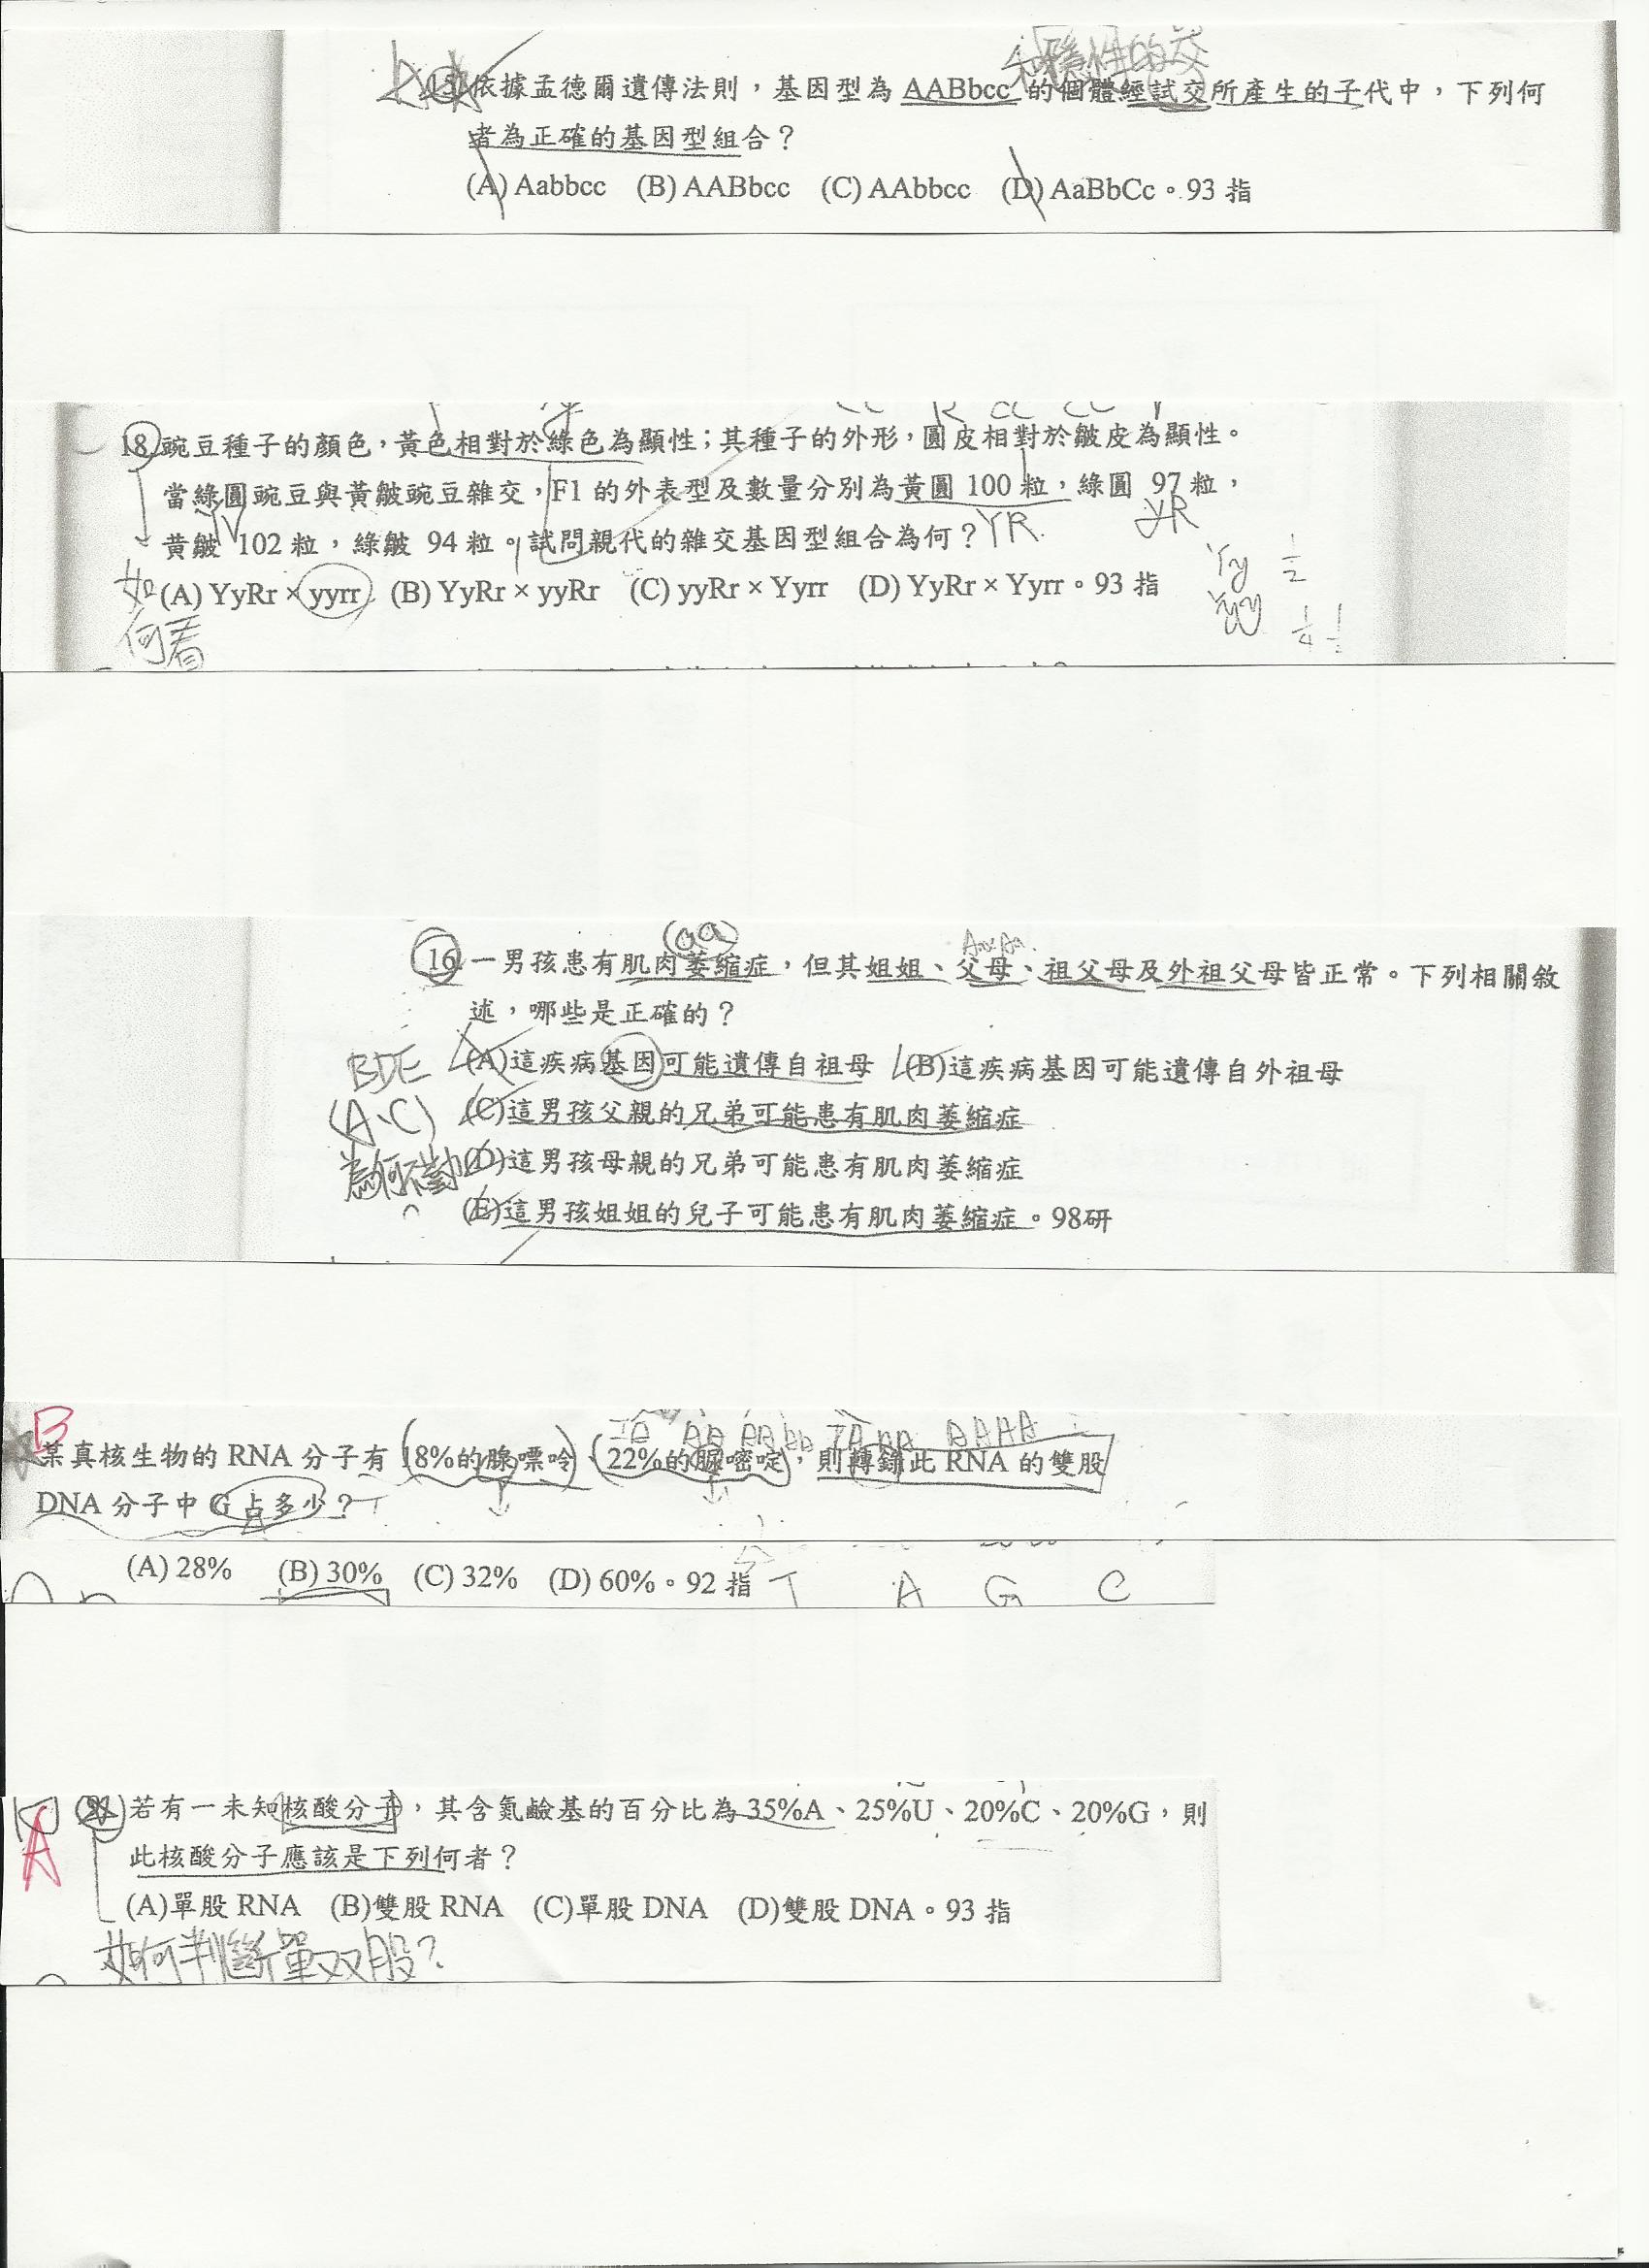 和隱性的交
15.依據孟德爾遺傳法則，基因型為 AABbcc 的個體經試交所產生的子代中，下列何
者為正確的基因型組合？
(A) Aabbcc (B) AABbcc (C) AAbbcc (D) AaBbCc。93 指
18.豌豆種子的顏色，黃色相對於綠色為顯性；其種子的外形，圓皮相對於皺皮為顯性。
當綠圓豌豆與黃皺豌豆雜交，F1 的外表型及數量分別為黃圓 100 粒，綠圓 97 粒，
黃皺 102 粒，綠皺 94 粒。試問親代的雜交基因型組合為何？YR yR
(A) YyRr × yyrr (B) YyRr × yyRr (C) yyRr × Yyrr (D) YyRr × Yyrr。93 指
Yy 1/2
yy 1/4 1/2
如
何看
(aa) Aa×Aa
16.一男孩患有肌肉萎縮症，但其姐姐、父母、祖父母及外祖父母皆正常。下列相關敘
述，哪些是正確的？
(A)這疾病基因可能遺傳自祖母 (B)這疾病基因可能遺傳自外祖母
(C)這男孩父親的兄弟可能患有肌肉萎縮症
(D)這男孩母親的兄弟可能患有肌肉萎縮症
(E)這男孩姐姐的兒子可能患有肌肉萎縮症。98研
BDE
(A、C)
為何不對
B
某真核生物的 RNA 分子有 18%的腺嘌呤、22%的脲嘧啶，則轉錄此 RNA 的雙股
DNA 分子中 G 占多少？
(A) 28% (B) 30% (C) 32% (D) 60%。92 指
T A G C
A
若有一未知核酸分子，其含氮鹼基的百分比為 35%A、25%U、20%C、20%G，則
此核酸分子應該是下列何者？
(A)單股 RNA (B)雙股 RNA (C)單股 DNA (D)雙股 DNA。93 指
如何判斷單双股？